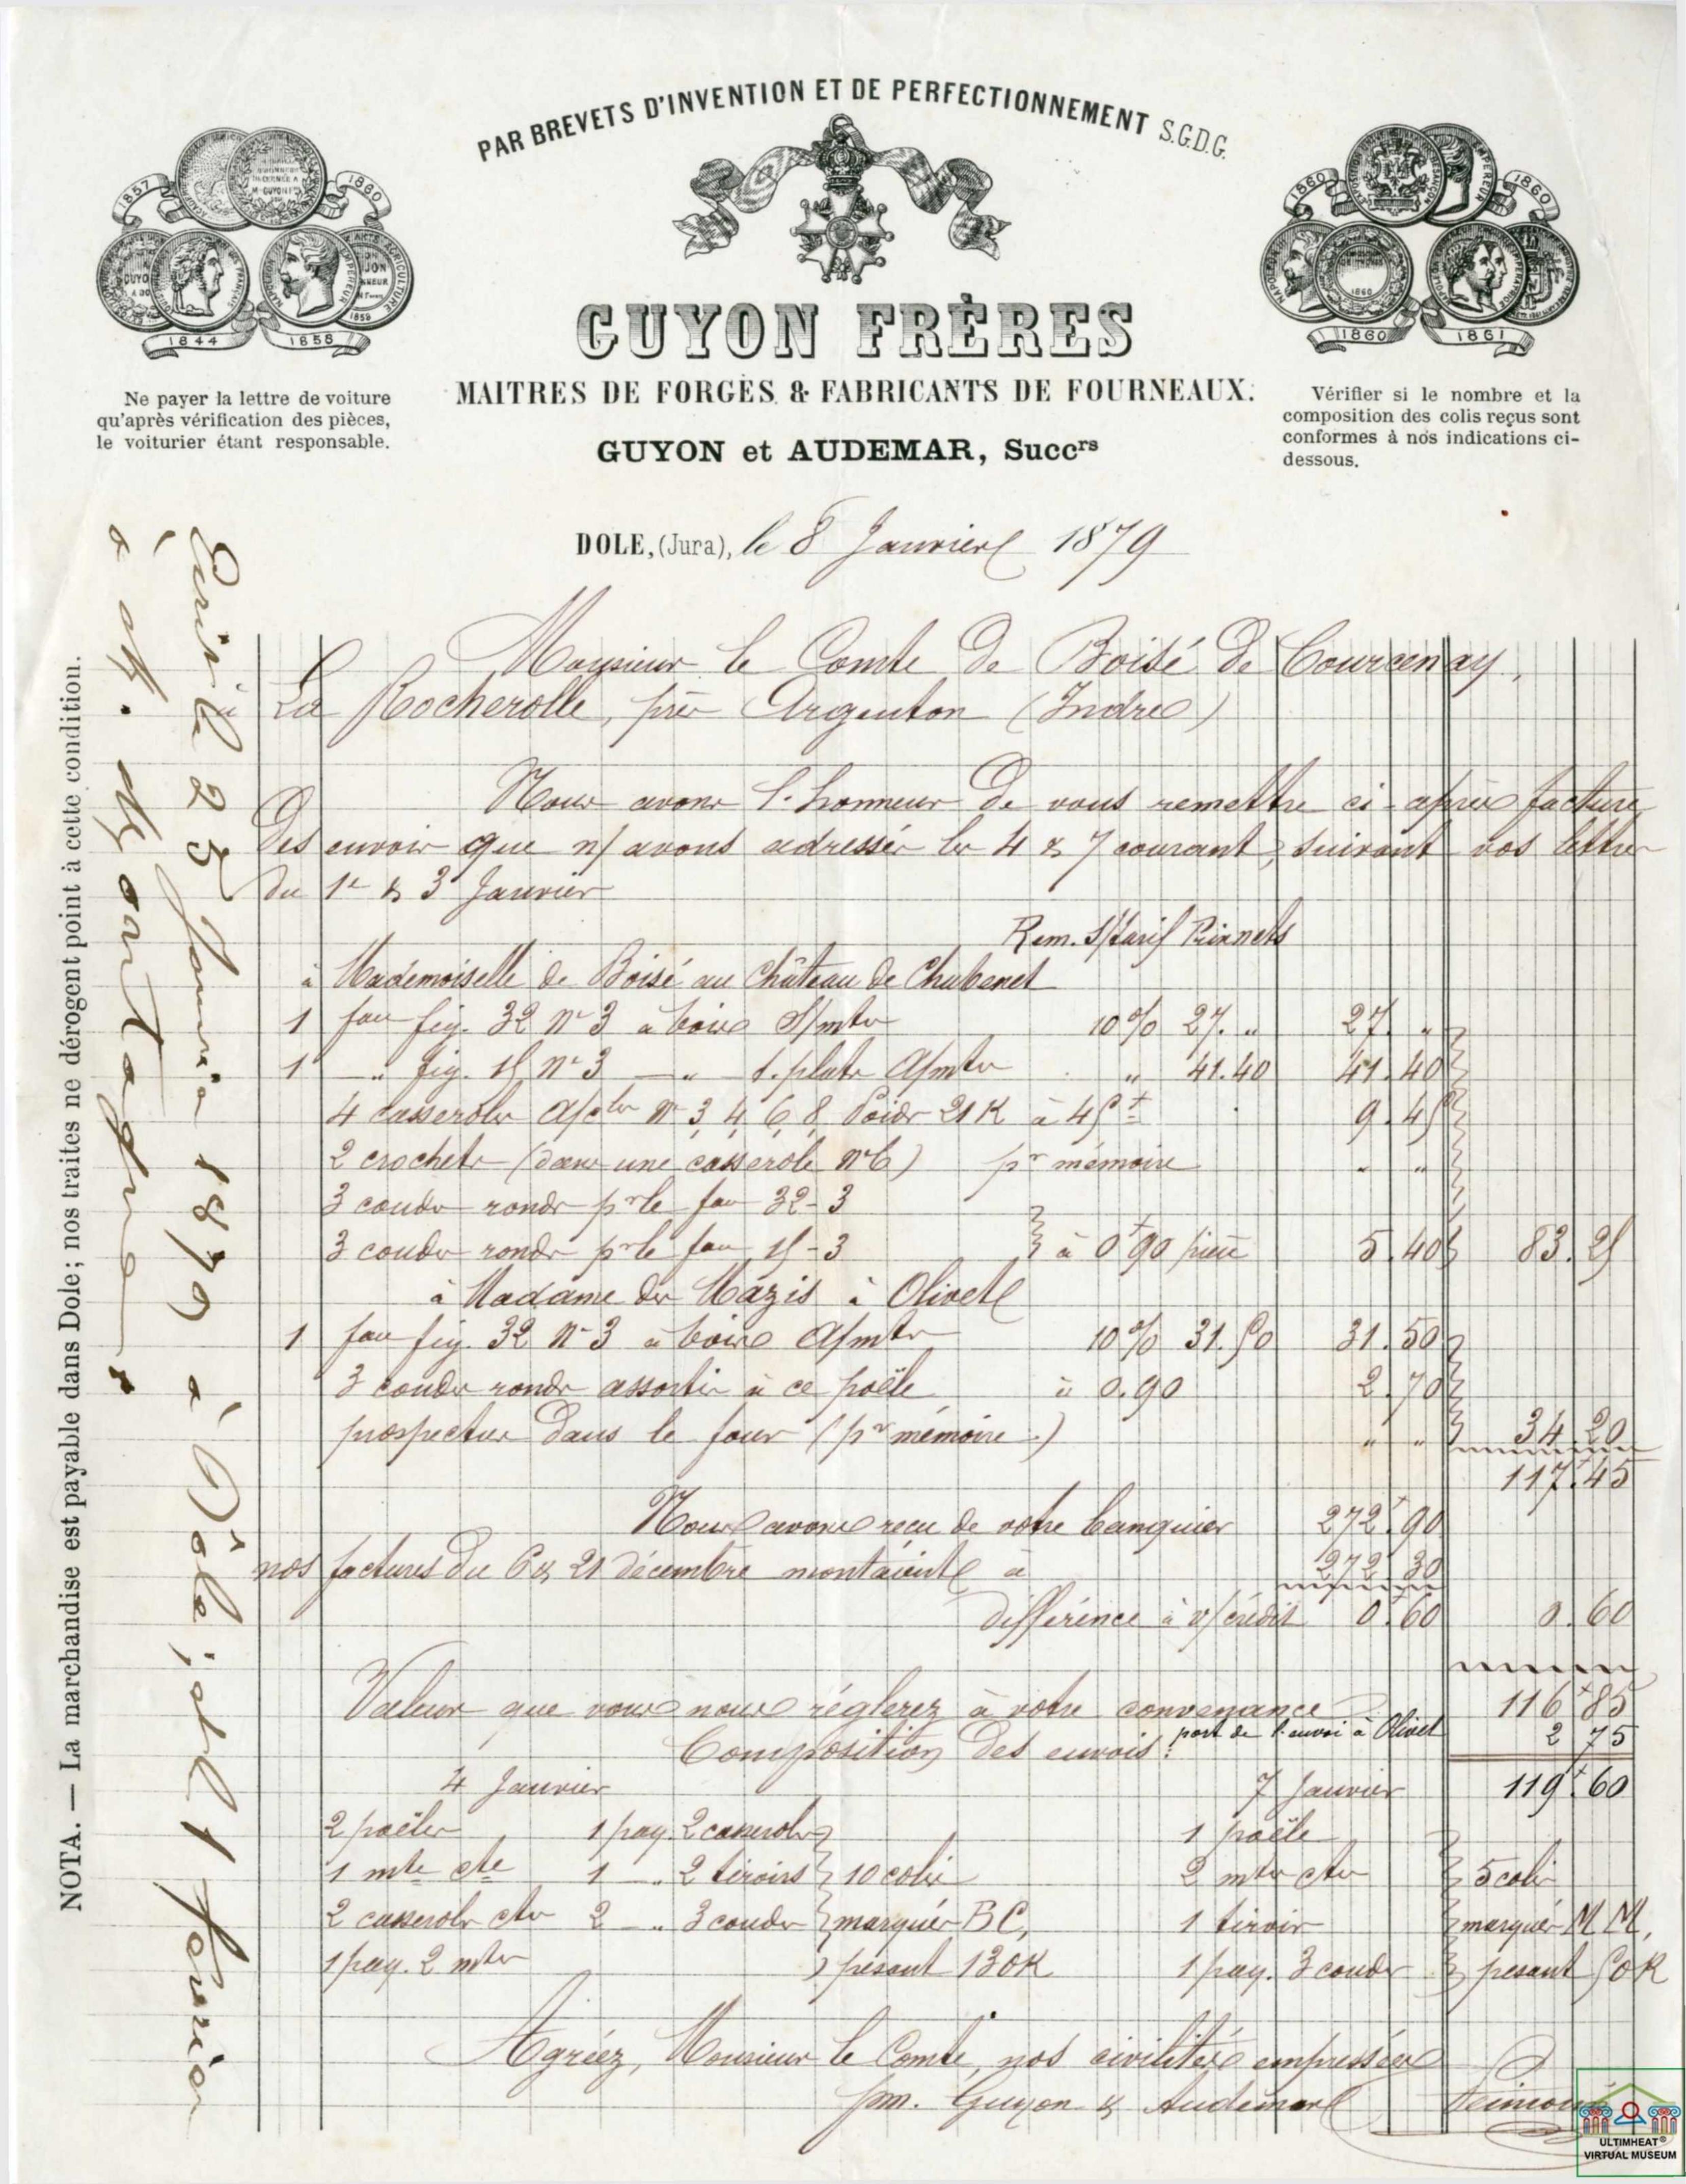 PAR BREVETS D'INVENTION ET DE PERFECTIONNEMENT S.G.D.G.
1857
1860
1844
1858
1860
1860
1860
1861
GUYON FRÈRES
MAITRES DE FORGES & FABRICANTS DE FOURNEAUX.
GUYON et AUDEMAR, Succrs
Ne payer la lettre de voiture
qu'après vérification des pièces,
le voiturier étant responsable.
Vérifier si le nombre et la
composition des colis reçus sont
conformes à nos indications ci-
dessous.
DOLE, (Jura), le 8 Janvier 1879
Monsieur le Comte de Boisé de Courcenay,
à La Rocherolle, près Argenton (Indre)
Nous avons l'honneur de vous remettre ci-après facture
des envois que n/ avons adressés les 4 & 7 courant, suivant vos lettres
du 1er & 3 Janvier
Rem. s/tarif Prix nets
à Mademoiselle de Boisé au Château de Chabenet
1 fau fig. 32 No 3 à bois s/mtes 10% 27. " 27. "
1 " fig. 15 No 3 " 1. plate a/mtes " 41.40 41.40
4 casseroles a/cles No 3, 4, 6, 8, Poids 21K à 45c 9.45
2 crochets (dans une casserole No 6) pr mémoire " "
3 coudes ronds pr le fau 32-3
3 coudes ronds pr le fau 15-3 à 0f90 pièce 5.40 83.25
à Madame des Mazis à Olivet
1 fau fig. 32 No 3 à bois a/mtes 10% 31.50 31.50
3 coudes ronds assortis à ce poële à 0.90 2.70
prospectus dans le four (pr mémoire) " " 34.20
117f45
Nous avons reçu de votre banquier 272f90
nos factures du 6 & 21 décembre montaient à 272f30
différence à v/crédit 0f60 0.60
Valeur que vous nous réglerez à votre convenance 116f85
port de l'envoi à Olivet 2 75
Composition des envois :
4 Janvier 7 Janvier 119f60
2 poëles 1 paq. 2 casseroles 1 poële
1 mte cte 1 " 2 tiroirs 10 colis 2 mtes ctes 5 colis
2 casseroles ctes 2 " 3 coudes marqués BC, 1 tiroir marqués M M,
1 paq. 2 mtes pesant 130K 1 paq. 3 coudes pesant 50K
Agréez, Monsieur le Comte, nos civilités empressées
pm. Guyon & Audemar
Ecrit le 25 Janvier 1879 à Dôle ; et le 1 février
à M. Montagne.
NOTA. — La marchandise est payable dans Dole; nos traites ne dérogent point à cette condition.
ULTIMHEAT®
VIRTUAL MUSEUM